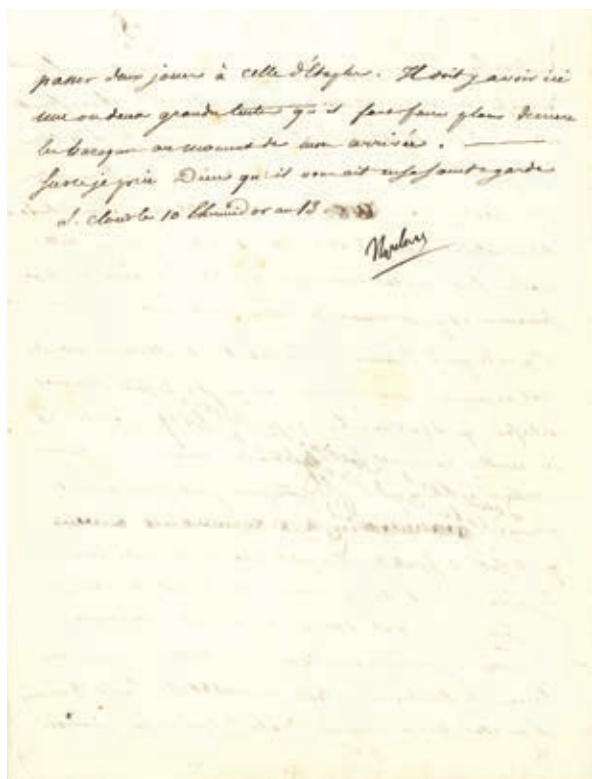 passer deux jours à celle d'Etaples. Il doit y avoir ici
une ou deux grandes tentes qu'il faut faire placer derriere
les baraques au moment de mon arrivée.
Sur ce je prie Dieu qu'il vous ait en sa sainte garde
S. Cloud le 10 thermidor an 13.